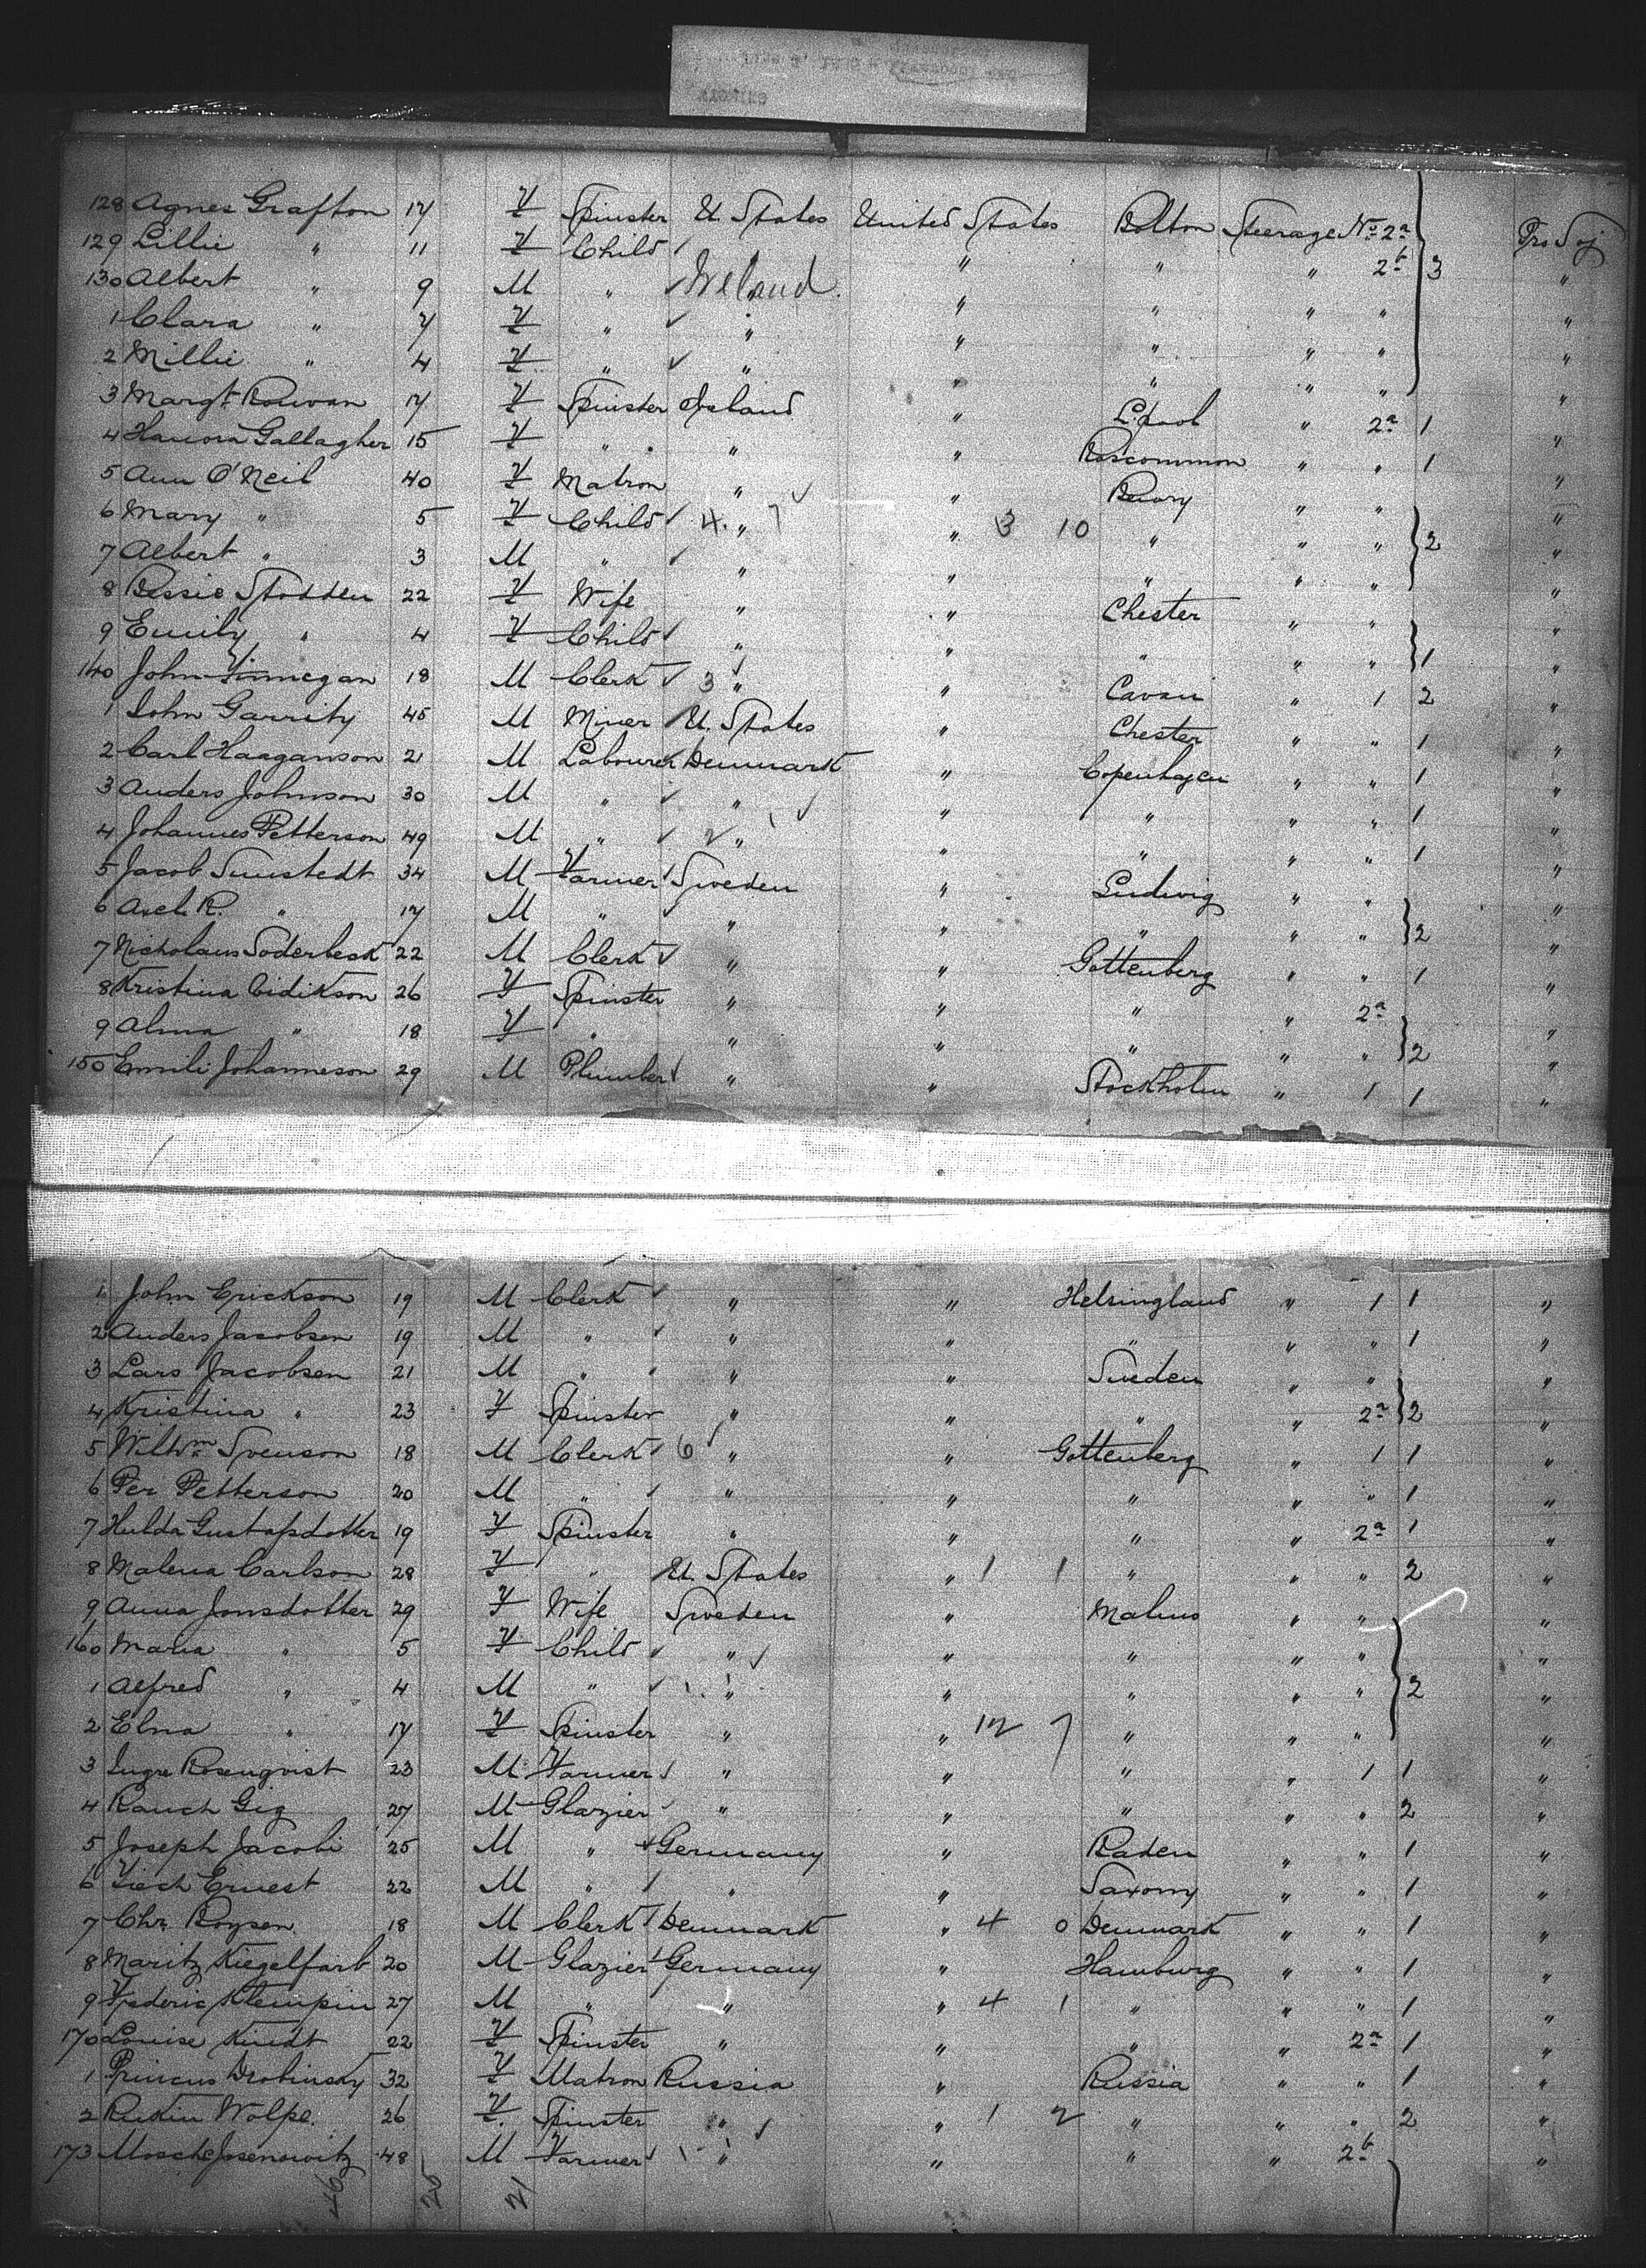 128 Agnes Grafton 17 F Spinster U. States United States Bolton Steerage No. 2a Pro Soj
129 Lillie " 11 F Child " " " 2b 3 "
130 Albert " 9 M " Ireland " " " " "
1 Clara " 7 F " " " " " " "
2 Millie " 4 F " " " " " " "
3 Margt. Rowan 17 F Spinster Ireland " L.pool " 2a 1 "
4 Hanora Gallagher 15 F " " " Roscommon " " 1 "
5 Ann O'Neil 40 F Matron " " " " "
6 Mary " 5 F Child 4 " 7 " 3 10 " " " 2 "
7 Albert " 3 M " " " " " " "
8 Bessie Stodden 22 F Wife " " Chester " " "
9 Emily " 4 F Child " " " " " 1 "
140 John Finnegan 18 M Clerk 3 " " Cavan " 1 2 "
1 John Garrity 45 M Miner U. States " Chester " " 1 "
2 Carl Haaganson 21 M Labourer Denmark " Copenhagen " " 1 "
3 Anders Johnson 30 M " " " " " " 1 "
4 Johannes Petterson 49 M " 2 " " " " " 1 "
5 Jacob Sunstedt 34 M Farmer Sweden " Ludwig " " "
6 Axel R. " 17 M " " " " " " 2 "
7 Nicholaus Soderbeck 22 M Clerk " " Gottenberg " " 1 "
8 Kristina Cidikson 26 F Spinster " " " " 2a "
9 Alma " 18 F " " " " " " 2 "
150 Emili Johanneson 29 M Plumber " " Stockholm " 1 1 "
1 John Erickson 19 M Clerk " " Helsingland " 1 1 "
2 Anders Jacobsen 19 M " " " " " " 1 "
3 Lars Jacobsen 21 M " " " Sweden " " "
4 Kristina " 23 F Spinster " " " " 2a 2 "
5 Svenson 18 M Clerk 6 " " Gottenberg " 1 1 "
6 Per Petterson 20 M " " " " " " 1 "
7 Hulda Gustafsdotter 19 F Spinster " " " " 2a 1 "
8 Malena Carlson 28 F " U. States " 1 1 " " " 2 "
9 Anna Jonsdotter 29 F Wife Sweden " Malmo " " "
160 Maria " 5 F Child " " " " " "
1 Alfred " 4 M " " " " " " 2 "
2 Elna " 17 F Spinster " " 12 7 " " " "
3 Ingre Rosenqvist 23 M Farmer " " " " 1 1 "
4 Rauch Gig 27 M Glazier " " " " " 2 "
5 Joseph Jacobi 25 M " Germany " Baden " " 1 "
6 Ernest 22 M " " " Saxony " " 1 "
7 Chr. Boysen 18 M Clerk Denmark " 4 0 Denmark " " 1 "
8 Maritz Kiegelfarb 20 M Glazier Germany " Hamburg " " 1 "
9 Frederic Klempin 27 M " " " 4 1 " " " 1 "
170 Louise Kindt 22 F Spinster " " " " 2a 1 "
1 Drobinsky 32 F Matron Russia " Russia " " 1 "
2 Wolpe. 26 F. Spinster " " 1 2 " " " 2 "
173 Mosche Josenowitz 48 M Farmer " " " " 2b "
46 21